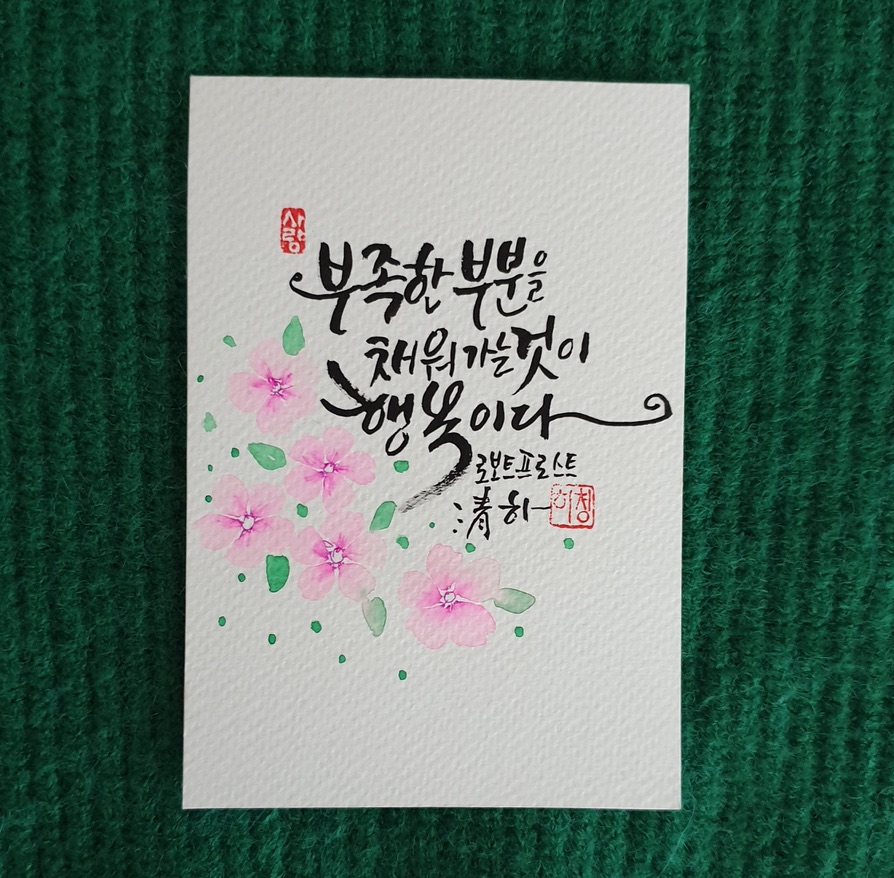 사랑
부족한 부분을
채워가는것이
행복이다
로보트프로스트
淸하
하청